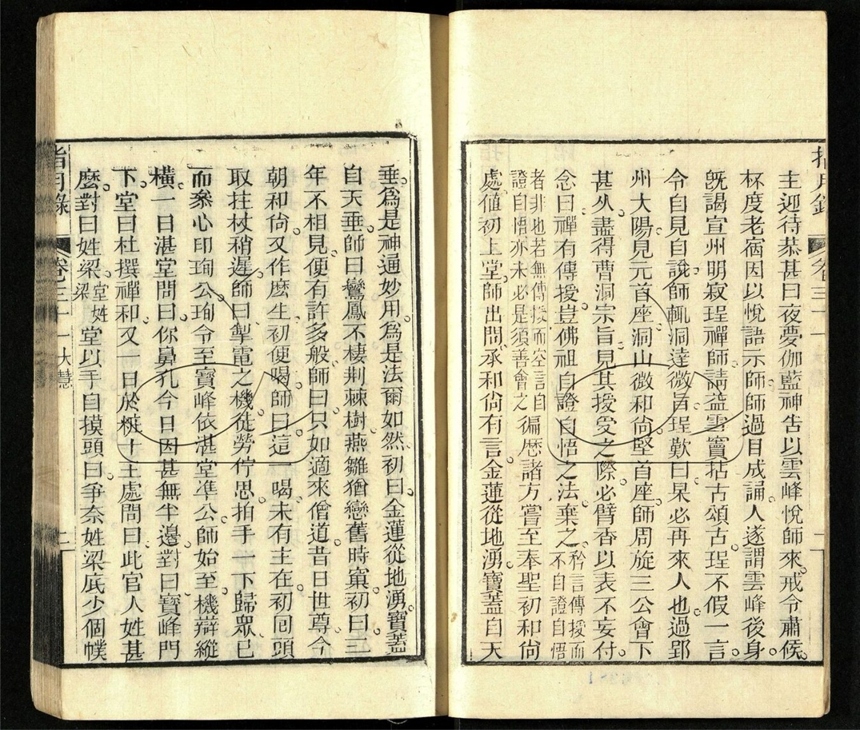 主迎待恭甚曰夜夢伽藍神告以雲峰悅師來戒令肅侯
杯度老宿因以悅語示師師過目成誦人遂謂雲峰後身
既謁宣州明寂珵禪師請益雪竇拈古頌古珵不假一言
令自見自說師輒洞達微旨珵歎曰杲必再來人也過郢
州大陽見元首座洞山微和尚堅首座師周旋三公會下
甚久盡得曹洞宗旨見其授受之際必臂香以表不妄付
念曰禪有傳授豈佛祖自證自悟之法棄之矜言傳授而不自證自悟
者非也若無傳授而空言自證自悟亦未必是須善會之徧歷諸方嘗至奉聖初和尚
處值初上堂師出問承和尚有言金蓮從地湧寶葢自天
指月錄
卷三十一
垂為是神通妙用為是法爾如然初曰金蓮從地湧寶葢
自天垂師曰鸞鳳不棲荆棘樹燕雛猶戀舊時窠初曰三
年不相見便有許多般師曰只如適來僧道昔日世尊今
朝和尚又作麼生初便喝師曰這一喝未有主在初回頭
取拄杖稍遲師曰掣電之機徒勞佇思拍手一下歸眾已
而叅心印珣公珣令至寶峰依湛堂準公師始至機辯縱
橫一日湛堂問曰你鼻孔今日因甚無半邊對曰寶峰門
下堂曰杜撰禪和又一日於粧十王處問曰此官人姓甚
麼對曰姓梁堂姓梁堂以手自摸頭曰爭奈姓梁底少個幞
指月錄
卷三十一 大慧
二